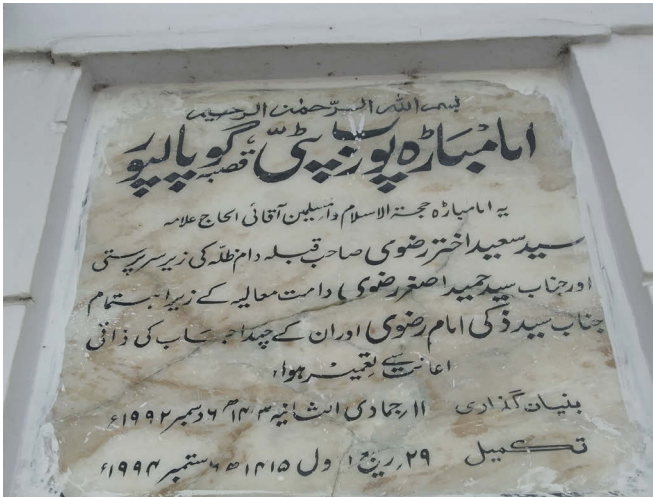 بسم الله الرحمن الرحيم
امامباڑہ پورب پٹی، قصبہ گوپالپور
یہ امامباڑہ حجۃ الاسلام والمسلمین آقائی الحاج علامہ
سید سعید اختر رضوی صاحب قبلہ دام ظلہ کی زیر سرپرستی
اور جناب سید حمید اصغر رضوی دامت معالیہ کے زیر اہتمام
جناب سید ذکی امام رضوی اور ان کے چند احباب کی ذاتی
اعانت سے تعمیر ہوا،
بنیان گذاری ۱۱ جمادی الثانیہ ۱۴۱۳ھ ۶ دسمبر ۱۹۹۲ء
تکمیل ۲۹ ربیع اول ۱۴۱۵ھ ۶ ستمبر ۱۹۹۴ء